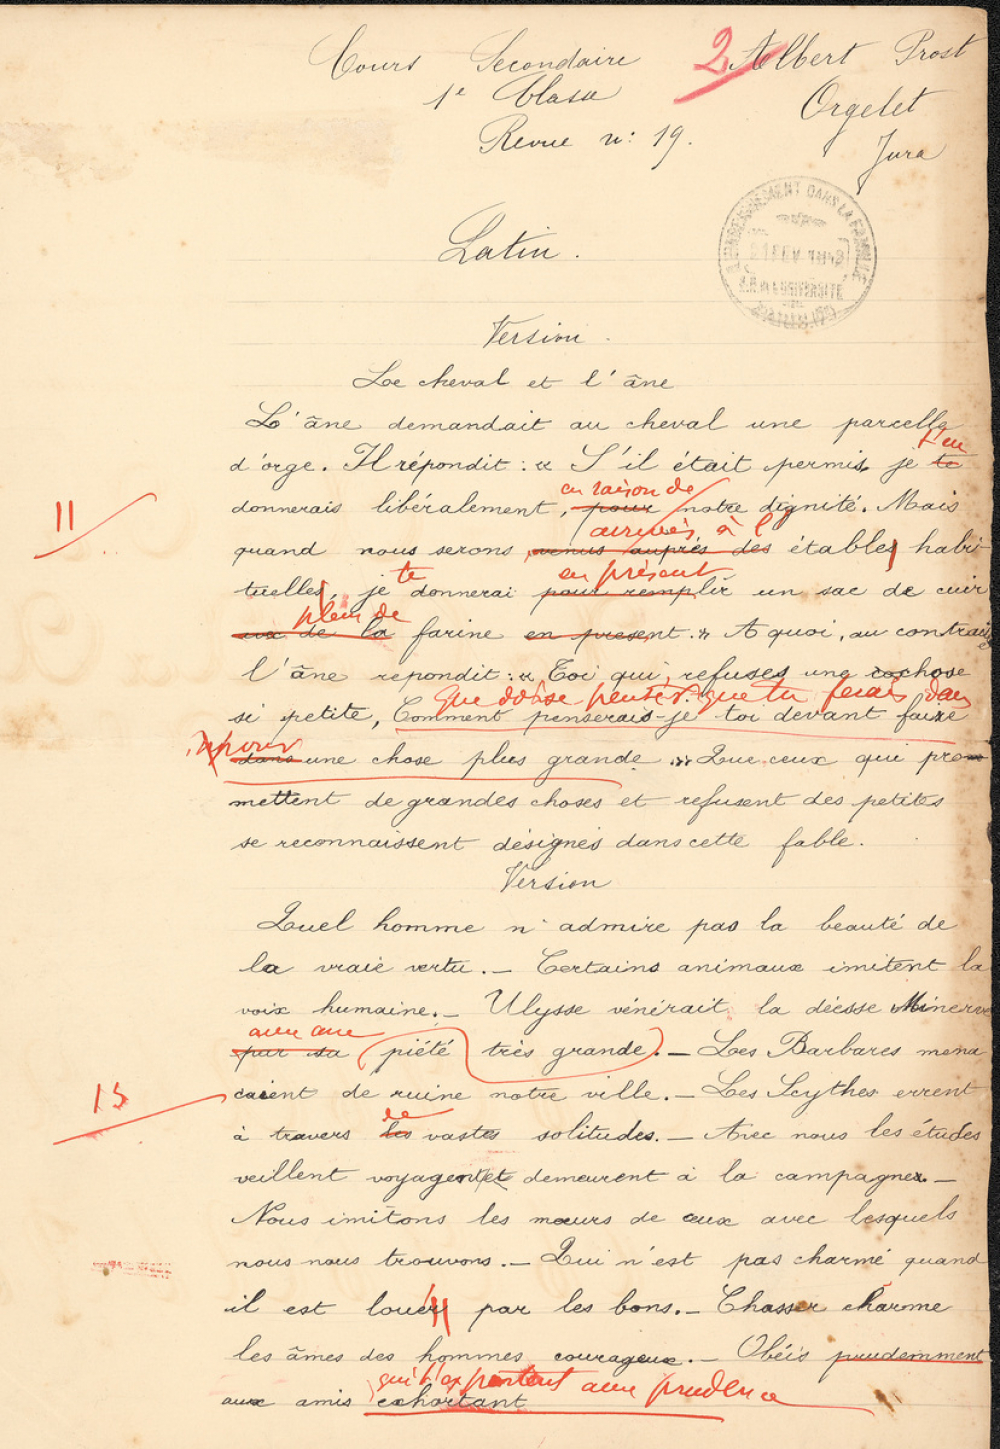 Cours Secondaire 2 Albert Prost
1e Classe Orgelet
Revue n: 19. Jura
L'ENSEIGNEMENT DANS LA FAMILLE
Latin.
Version.
Le cheval et l'âne
L'âne demandait au cheval une parcelle
t'en
d'orge. Il répondit : « S'il était permis, je te
en raison de
11
donnerais libéralement, pour notre dignité. Mais
arrivés à l'
quand nous serons venus auprès des étables habi-
te en présent
tuelles, je donnerai pour remplir un sac de cuir
plein de
de la farine en present. » A quoi, au contraire
l'âne repondit : « Toi qui refuses une chose
que dois-je penser que tu ferais dans
si petite, Comment penserais-je toi devant faire
pour
dans une chose plus grande ». Que ceux qui pro
mettent de grandes choses et refusent des petites
se reconnaissent désignés dans cette fable.
Version
Quel homme n'admire pas la beauté de
la vraie vertu. — Certains animaux imitent la
voix humaine. — Ulysse vénérait la déesse Minerve
avec une
par sa piété très grande. — Les Barbares mena
15
caient de ruine notre ville. — Les Scythes errent
de
à travers les vastes solitudes. — Avec nous les études
veillent voyagent et demeurent à la campagne. —
Nous imitons les mœurs de ceux avec lesquels
nous nous trouvons. — Qui n'est pas charmé quand
il est loué par les bons. — Chasser charme
les âmes des hommes courageux. — Obéis prudemment
qui t'exhortent avec prudence
aux amis exhortant